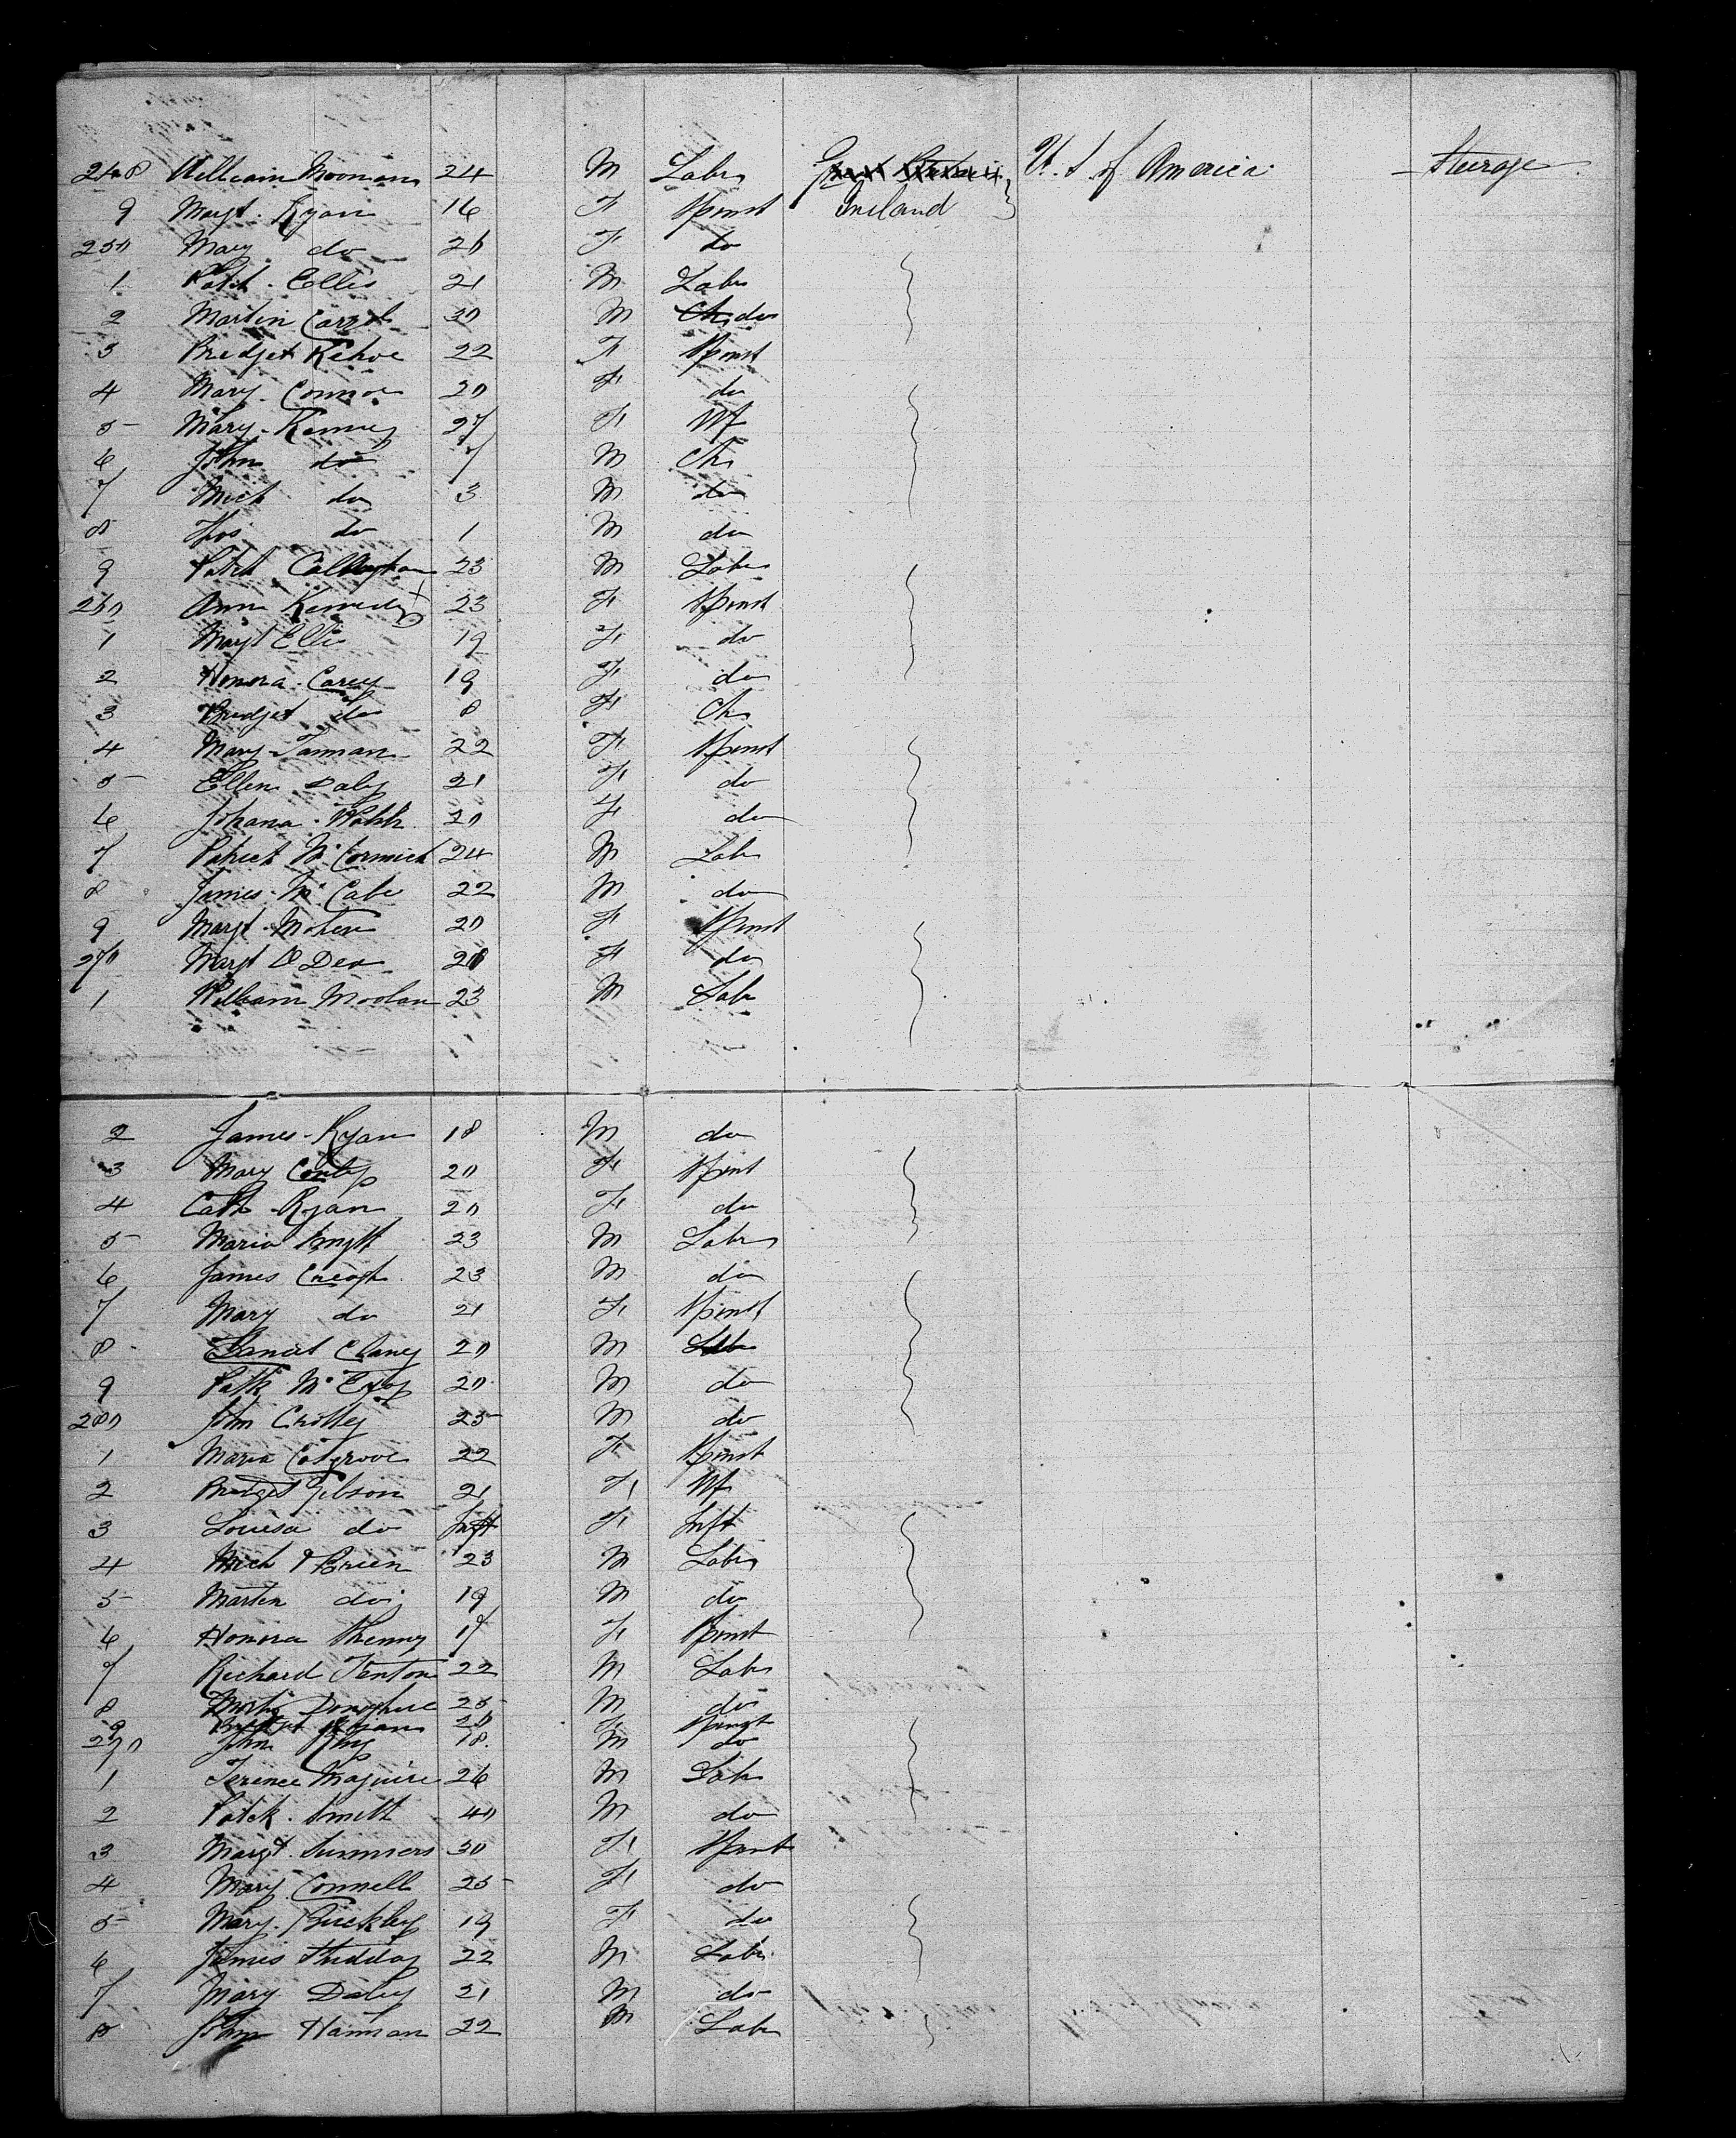 248 William Moonan 24 M Labr Great Britain U. S. of America Steerage
9 Margt. Ryan 16 F Spinst Ireland
250 Mary do 26 F do
1 Patk. Ellis 21 M Labr
2 Martin 30 M Ch do
3 Bridjet Kehoe 22 F Spinst
4 Mary Connor 20 F do
5 Mary Kenney 27 F Wf
6 John do 7 M Ch
7 Mich do 3 M do
8 Thos do 1 M do
9 Patck Callaghan 23 M Labr
260 Ann Kennedy 23 F Spinst
1 Margt Ellis 19 F do
2 Honora Carey 19 F do
3 Bridjet do 8 F Ch
4 Mary 22 F Spinst
5 Ellen Daly 21 F do
6 Johana Walsh 20 F do
7 Patrick McCormick 24 M Labr
8 James McCabe 22 M do
9 Margt 20 F Spinst
270 Margt O Dea 20 F do
1 William Moolan 23 M Labr
2 James Ryan 18 M do
3 Mary 20 F Spinst
4 Cath Ryan 20 F do
5 Maria Smyth 23 M Labr
6 James Creagh 23 M do
7 Mary do 21 F Spinst
8 Daniel Clancy 20 M Labr
9 Patk 20 M do
280 John Crolley 25 M do
1 Maria Cosgrove 22 F Spinst
2 Bridget Gibson 21 F Wf
3 Louisa do Inft F Inft
4 Mich O Brien 23 M Labr
5 Martin do 19 M do
6 Honora 17 F Spinst
7 Richard Fenton 22 M Labr
8 Donoghue 25 M do
9 Bridget 20 F Spinst
290 John 18 M do
1 Terence Maguire 26 M Labr
2 Patck. Smith 40 M do
3 Margt. Summers 30 F Spinst
4 Mary Connell 25 F do
5 Mary Buckley 19 F do
6 James 22 M Labr
7 Mary Daley 21 M do
8 John Hannan 22 M Labr